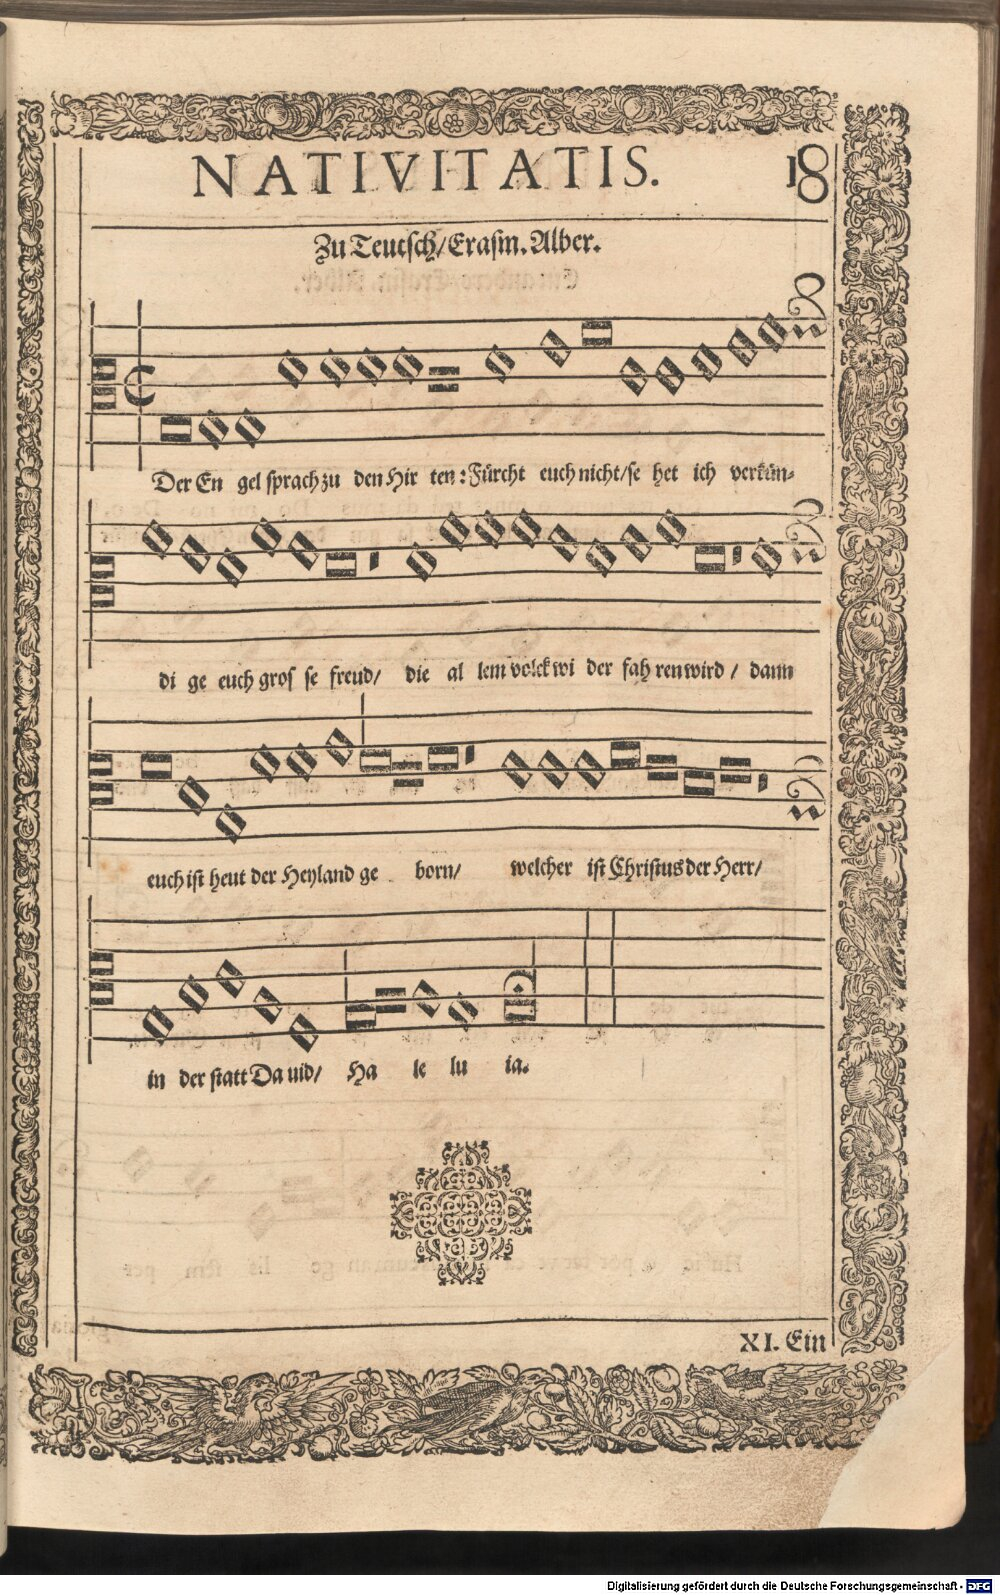 NATIVITATIS. 18
Zu Teutsch/Erasm. Alber.
Der En gel sprach zu den Hir ten: Fürcht euch nicht/se het ich verkün-
di ge euch gros se freud/ die al lem volck wi der fah ren wird/ dann
euch ist heut der Heyland ge born/ welcher ist Christus der Herr/
in der statt Da uid/ Ha le lu ia.
XI. Ein
Digitalisierung gefördert durch die Deutsche Forschungsgemeinschaft - DFG